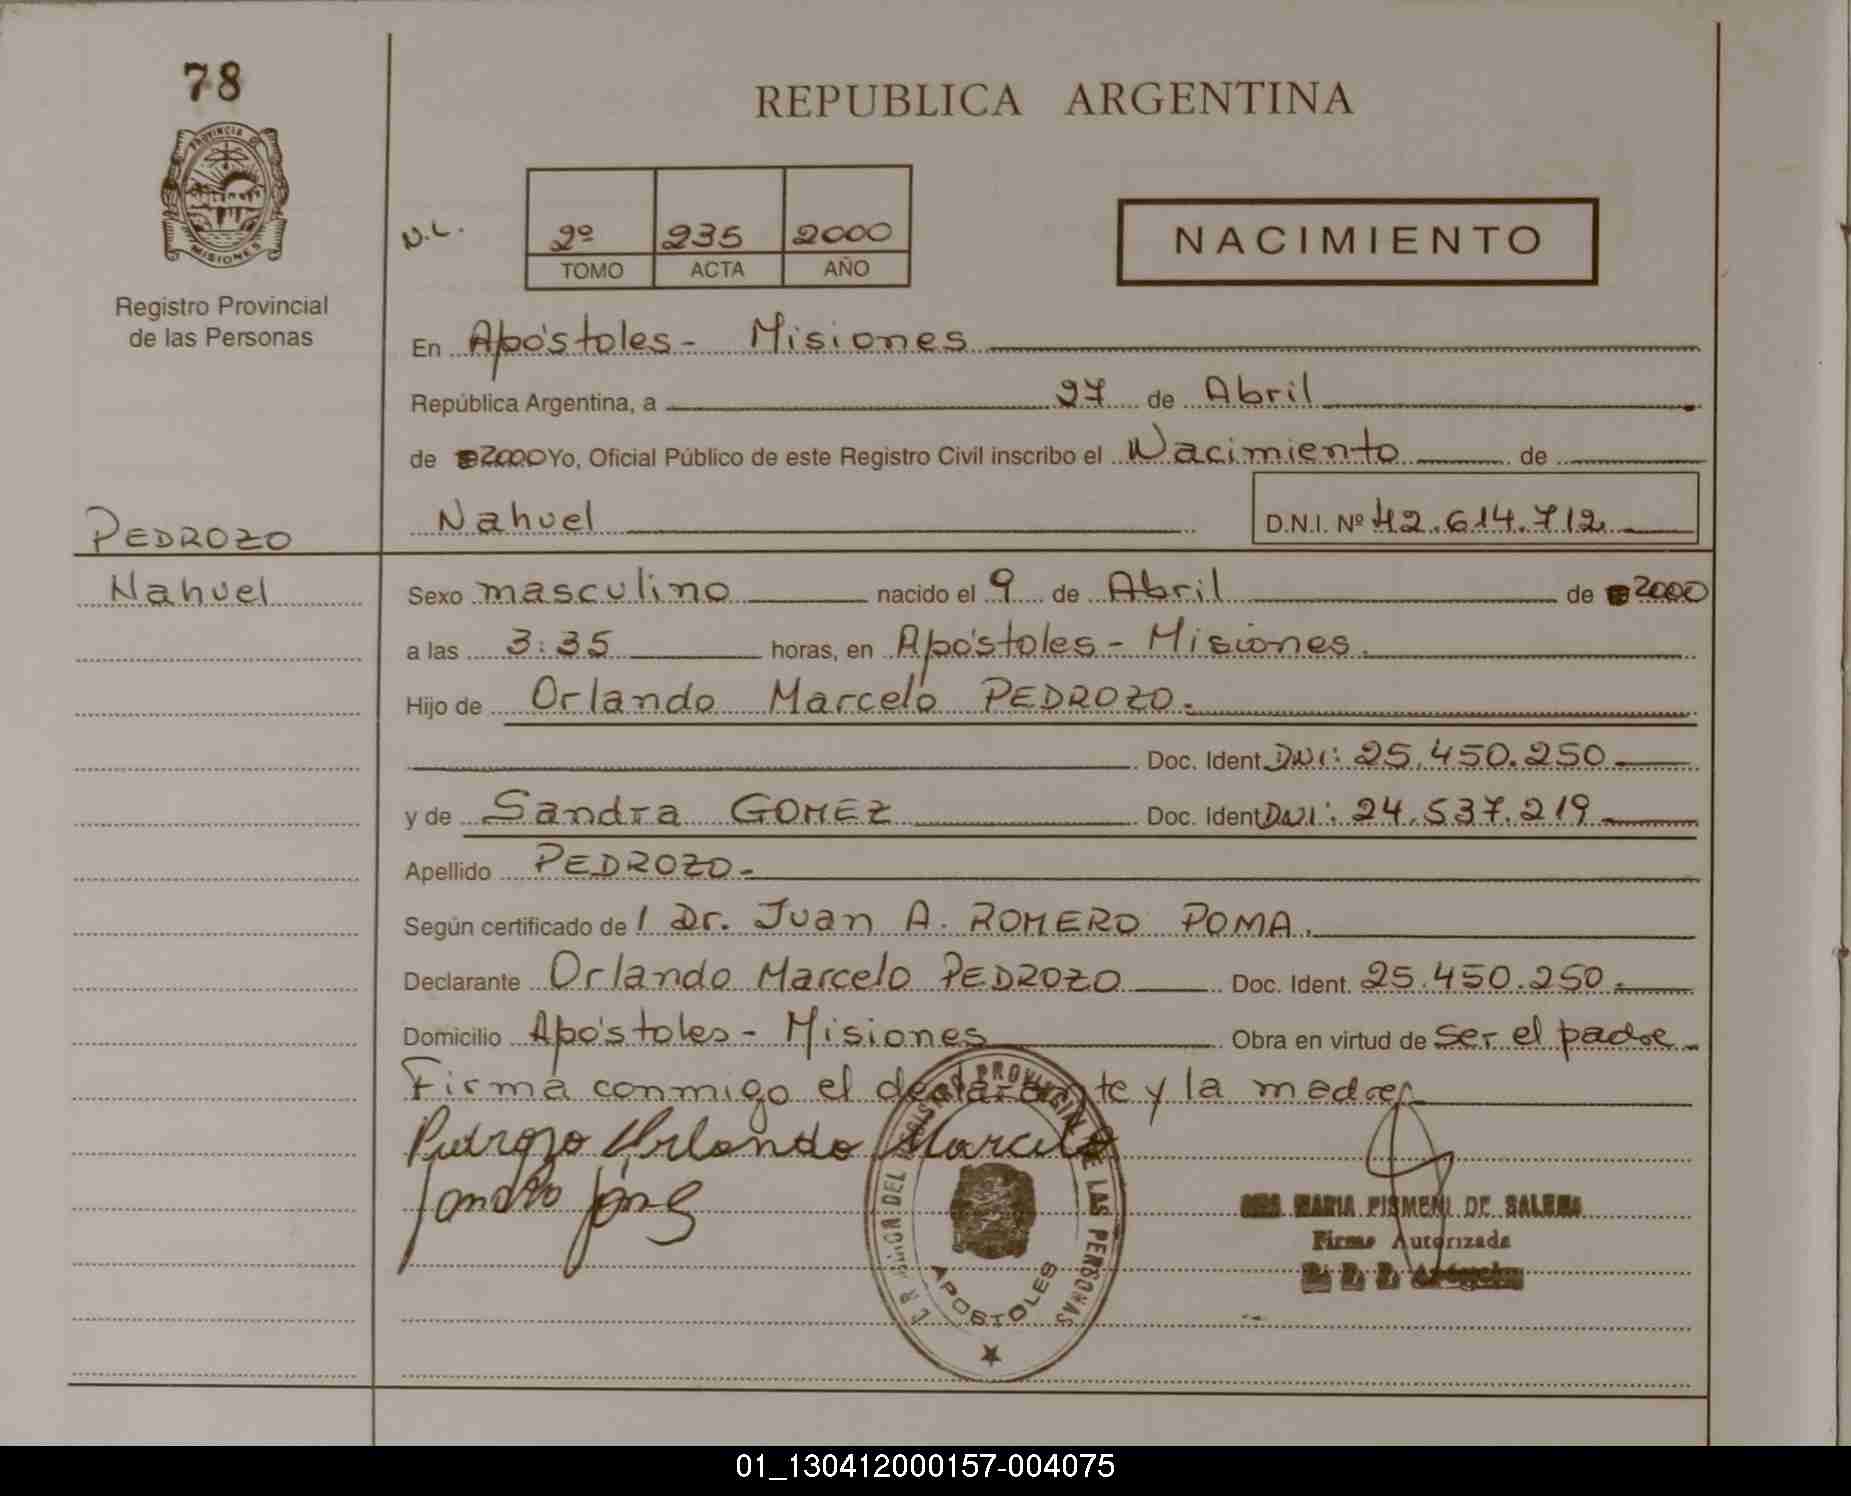 78
PROVINCIA DE
MISIONES
Registro Provincial
de las Personas
REPUBLICA ARGENTINA
N.L.
2º 235 2000
TOMO ACTA AÑO
NACIMIENTO
En Apóstoles - Misiones
República Argentina, a 27 de Abril
de 2000 Yo, Oficial Público de este Registro Civil inscribo el Nacimiento de
Nahuel D.N.I. Nº 42.614.712
PEDROZO
Nahuel
Sexo masculino nacido el 9 de Abril de 2000
a las 3:35 horas, en Apóstoles - Misiones.
Hijo de Orlando Marcelo PEDROZO.
Doc. Ident. DNI: 25.450.250
y de Sandra GOMEZ Doc. Ident. DNI: 24.537.219
Apellido PEDROZO.
Según certificado de / Dr. Juan A. ROMERO POMA.
Declarante Orlando Marcelo PEDROZO Doc. Ident. 25.450.250.
Domicilio Apóstoles - Misiones Obra en virtud de ser el padre
Firma conmigo el declarante y la madre
Pedrozo Orlando Marcelo
DEL REGISTRO PROVINCIAL DE LAS PERSONAS
APOSTOLES
MARIA PISMENI DE
Firma Autorizada
01_130412000157-004075